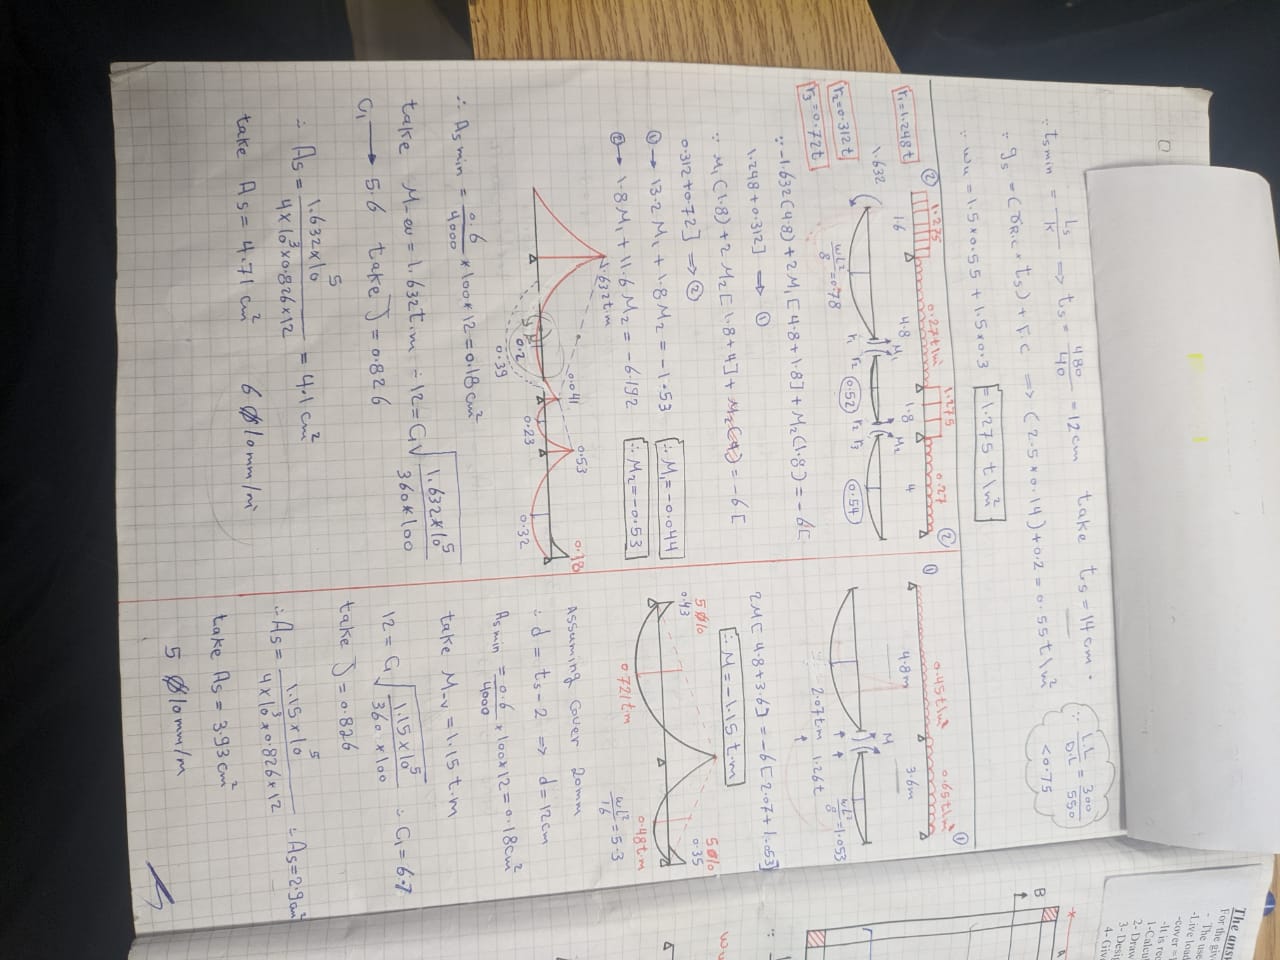 ∵ tsmin = Ls/k ⟹ ts = 480/40 = 12cm take ts = 14cm.
∵ L.L/D.L = 300/550 < 0.75
∵ gs = (γR.C * ts) + F.C ⟹ (2.5*0.14)+0.2 = 0.55 t\m²
∵ wu = 1.5*0.55 + 1.5*0.3 = 1.275 t\m²
② 1.275 0.27t\m² 1.275 0.27 ②
r1=1.248t
1.6 4.8 1.8 4
M1 M2
1.632
r1 r2 0.52 r2 r3 0.54
wL²/8 = 0.78
r2=0.312t
r3=0.72t
∵ -1.632(4.8) + 2M1[4.8+1.8] + M2(1.8) = -6[
1.248+0.312] ⟹ ①
∵ M1(1.8) + 2M2[1.8+4] + M2(4) = -6[
0.312+0.72] ⟹ ②
① → 13.2 M1 + 1.8 M2 = -1.53 ∴ M1 = -0.044
② → 1.8 M1 + 11.6 M2 = -6.192 ∴ M2 = -0.53
1.632t.m
0.041 0.53 0.18
0.2 0.23 0.32
0.39
∴ As min = 0.6/4000 * 100 * 12 = 0.18cm²
take M-ev = 1.632t.m ∴ 12 = C1 √(1.632*10⁵/360*100)
C1 → 5.6 take J = 0.826
∴ As = 1.632x10⁵/4x10³x0.826x12 = 4.1 cm²
take As = 4.71 cm² 6 Ø10mm/m
① 0.45t\m² 0.65t\m² ①
4.8m 3.6m
M
2.07t.m 1.26t wL²/8 = 1.053
2M[4.8+3.6] = -6[2.07+1.053]
∴ M = -1.15 t.m
5Ø10 5Ø10
0.43 0.35
0.721t.m 0.48t.m
wL²/16 = 5.3
Assuming Cover 20mm
∴ d = ts-2 ⟹ d = 12cm
As min = 0.6/4000 * 100*12 = 0.18cm²
take M-v = 1.15 t.m
12 = C1 √(1.15x10⁵/360x100) ∴ C1 = 6.7
take J = 0.826
∴ As = 1.15x10⁵/4x10³x0.826x12 ∴ As = 2.9cm²
take As = 3.93 cm²
5 Ø10mm/m
The
For the
- The use
-Live load
-cover =
-It is
1-
2- Draw
3-
4-
B